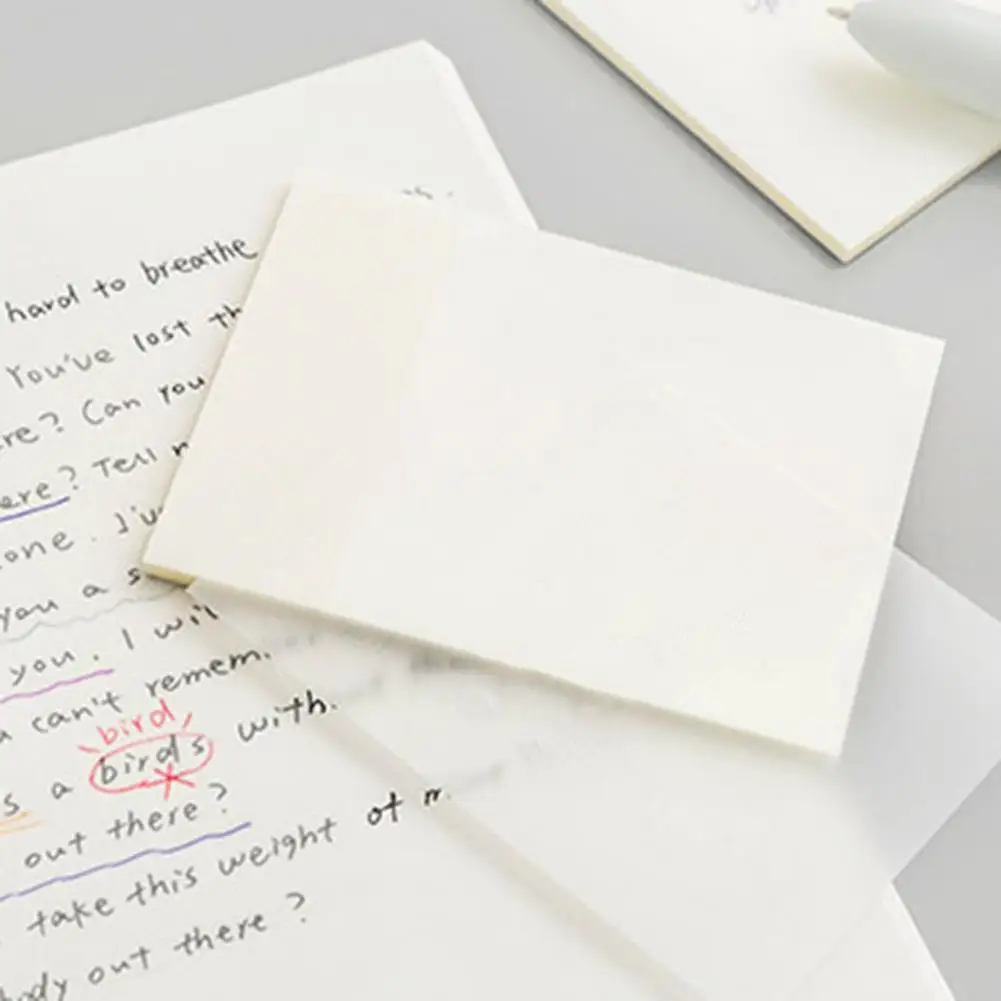 hard to breathe
You've lost th
re? Can you
ere? Tell
one. I've
you a s
you. I wil
can't remem.
bird
s a birds with.
out there?
take this weight of m.
body out there?